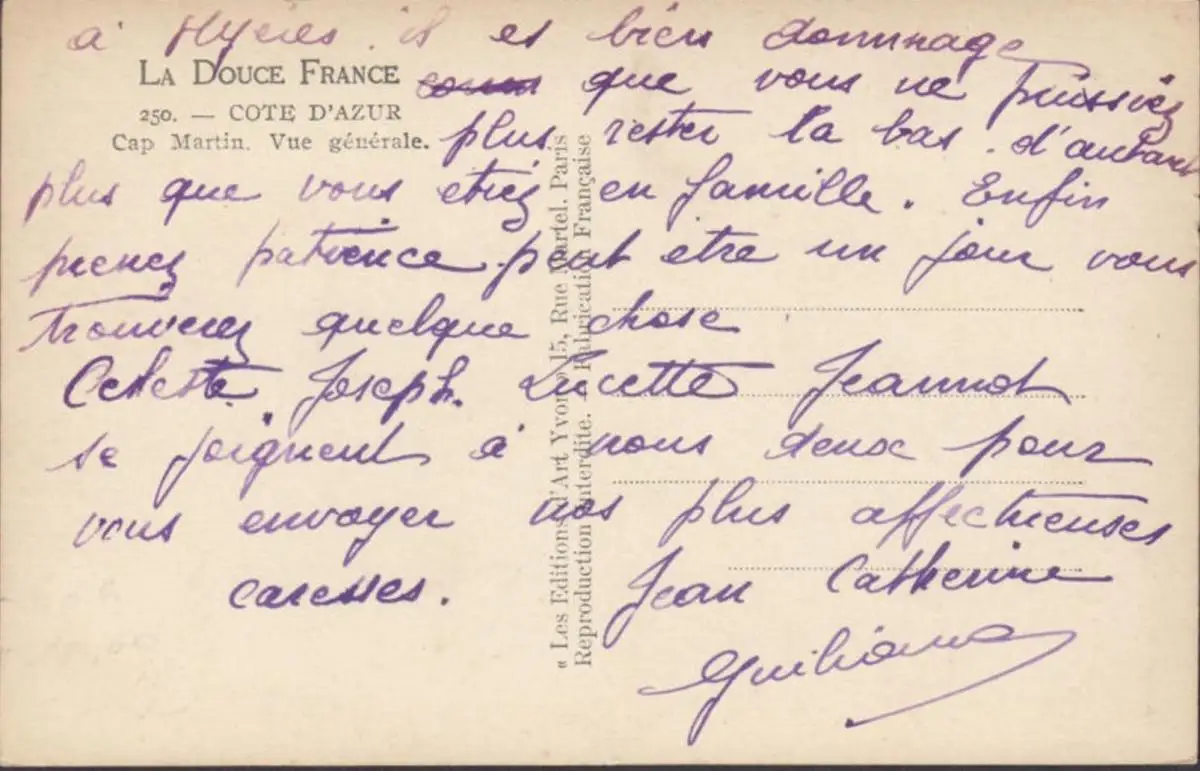 à Hyères. il es bien dommage
LA DOUCE FRANCE
que vous ne puissiez
250. — COTE D'AZUR
Cap Martin. Vue générale.
plus rester la bas. d'autant
plus que vous etiez en famille. Enfin
prenez patience peut etre un jour vous
trouverez quelque chose
Celeste. Joseph. Lucette Jeannot
se joignent à nous deux pour
vous envoyer nos plus affectueuses
caresses. Jean Catherine
Guiliana
« Les Editions d'Art Yvon » 15, Rue Martel, Paris
Reproduction interdite. Fabrication Française